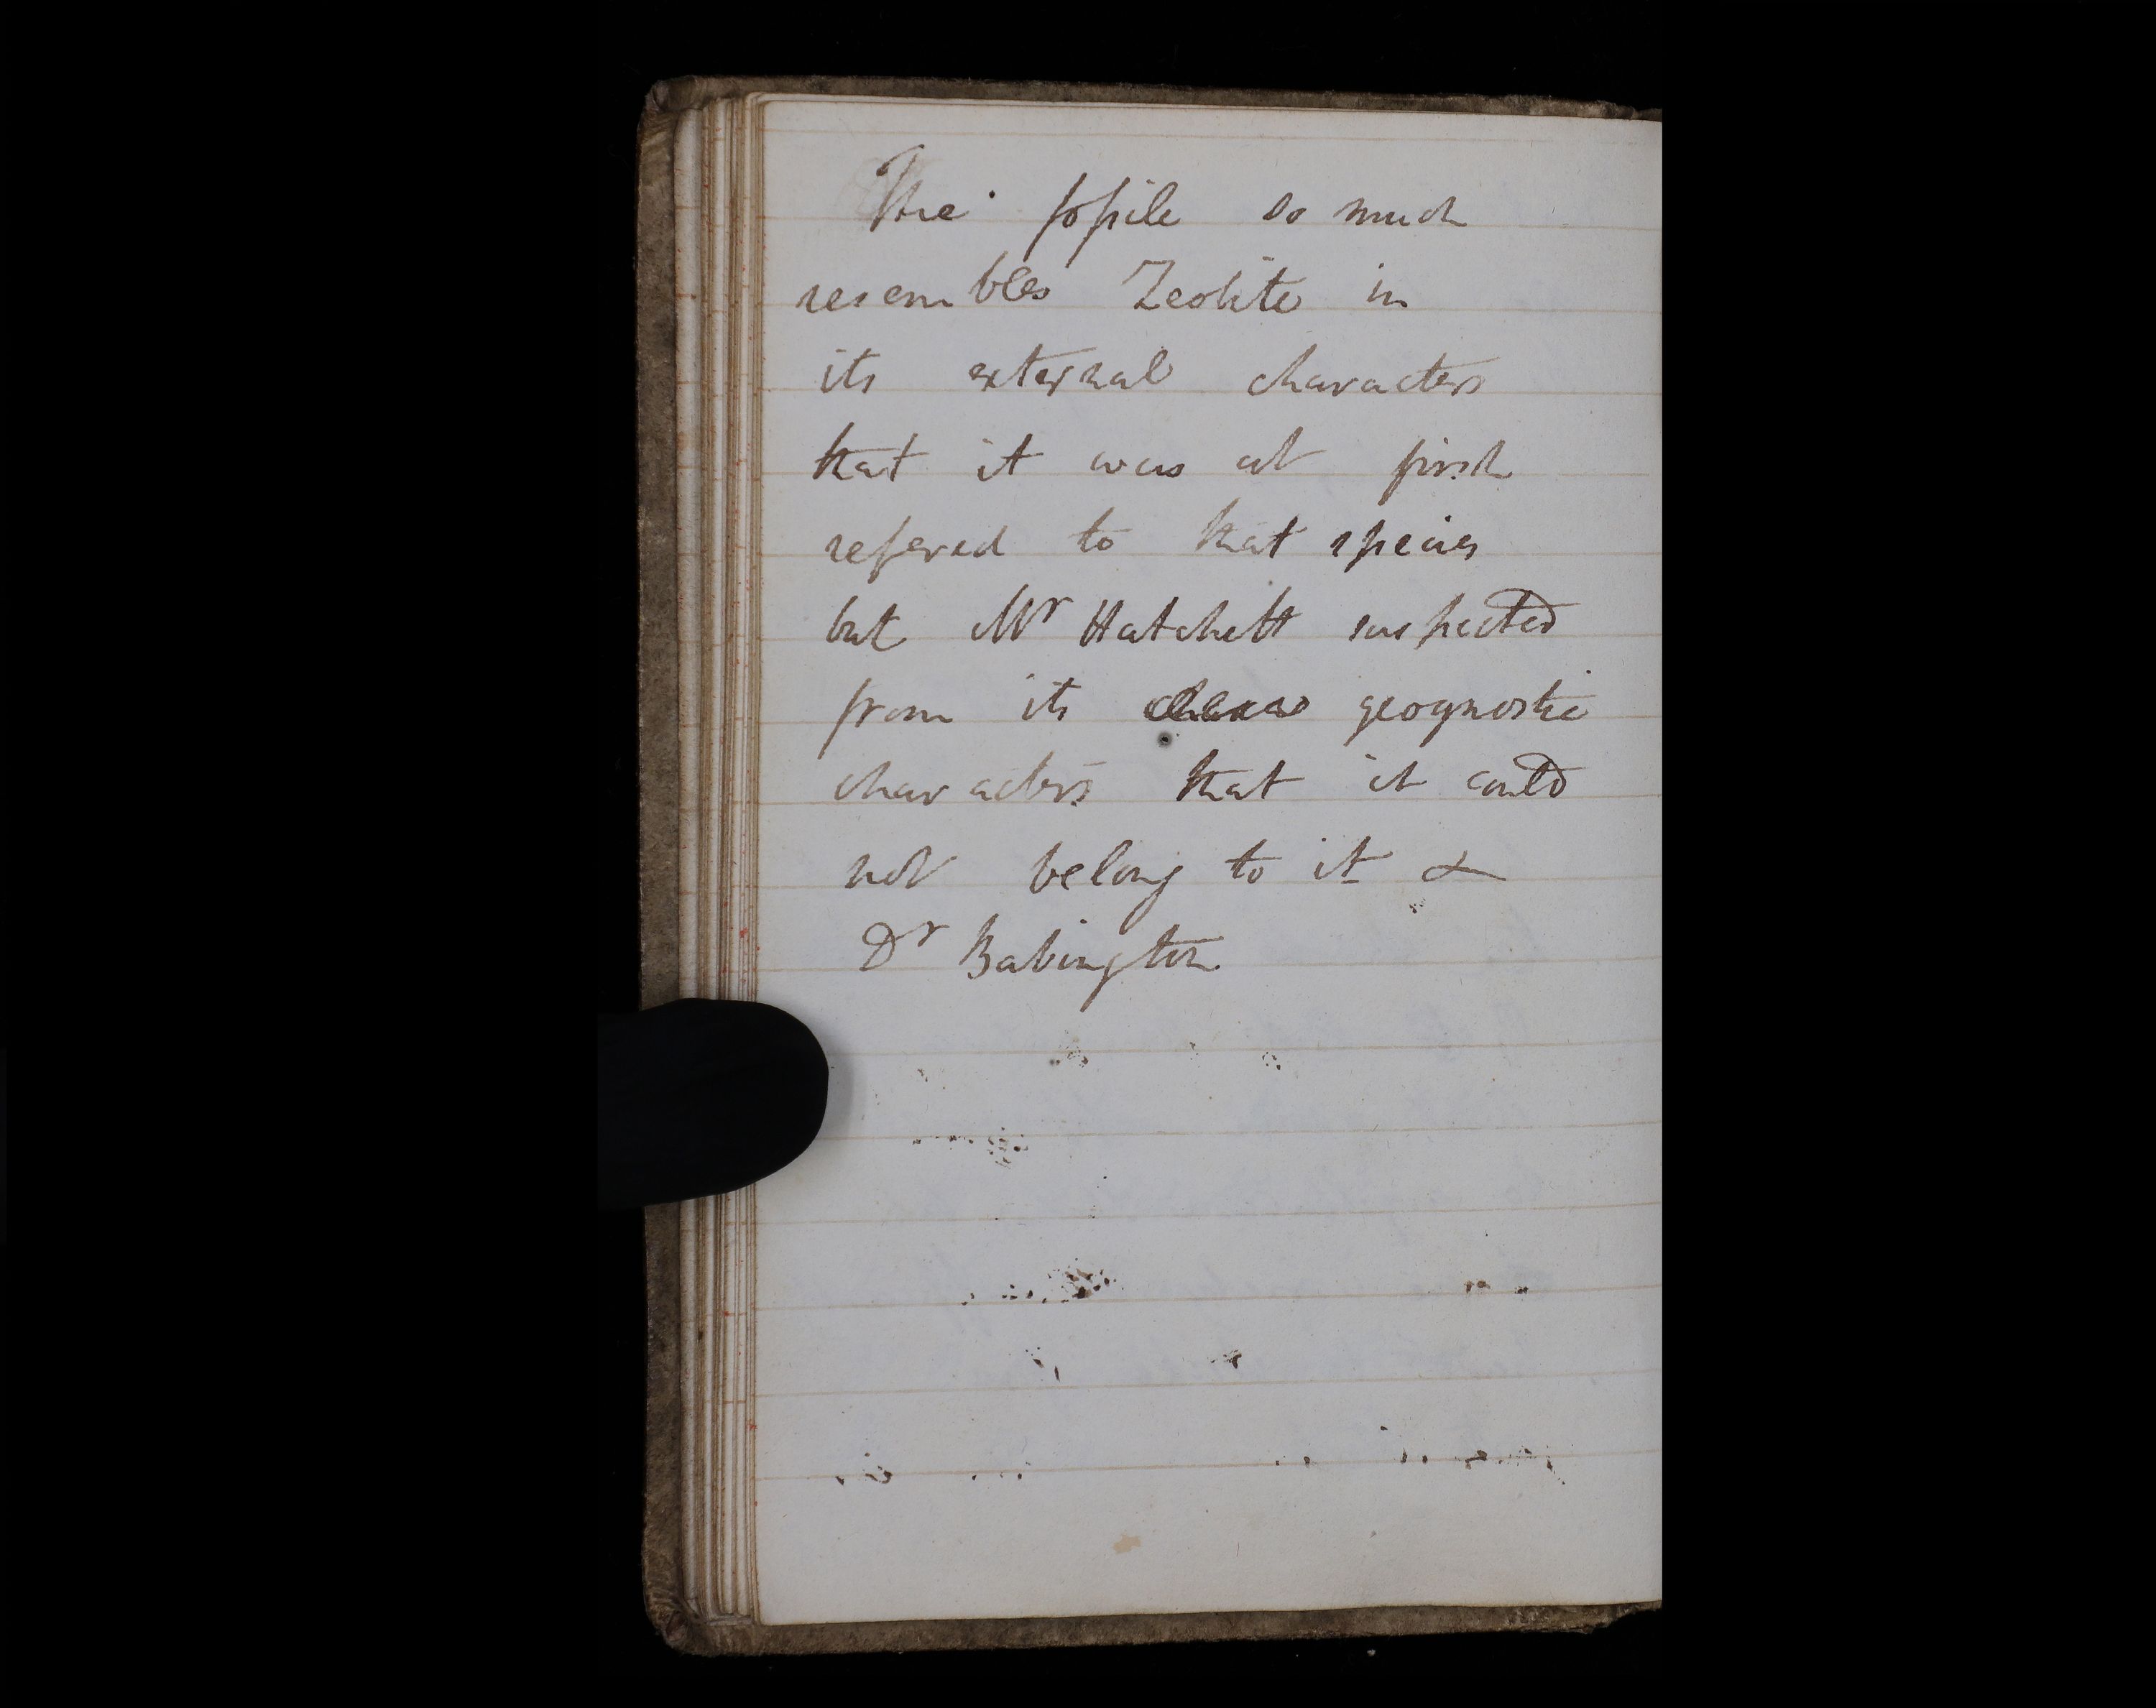 The fossile so much
resembles Zeolite in
its external characters
that it was at first
refered to that species
but Mr Hatchett suspected
from its geognostic
characters that it could
not belong to it &
Dr Babington